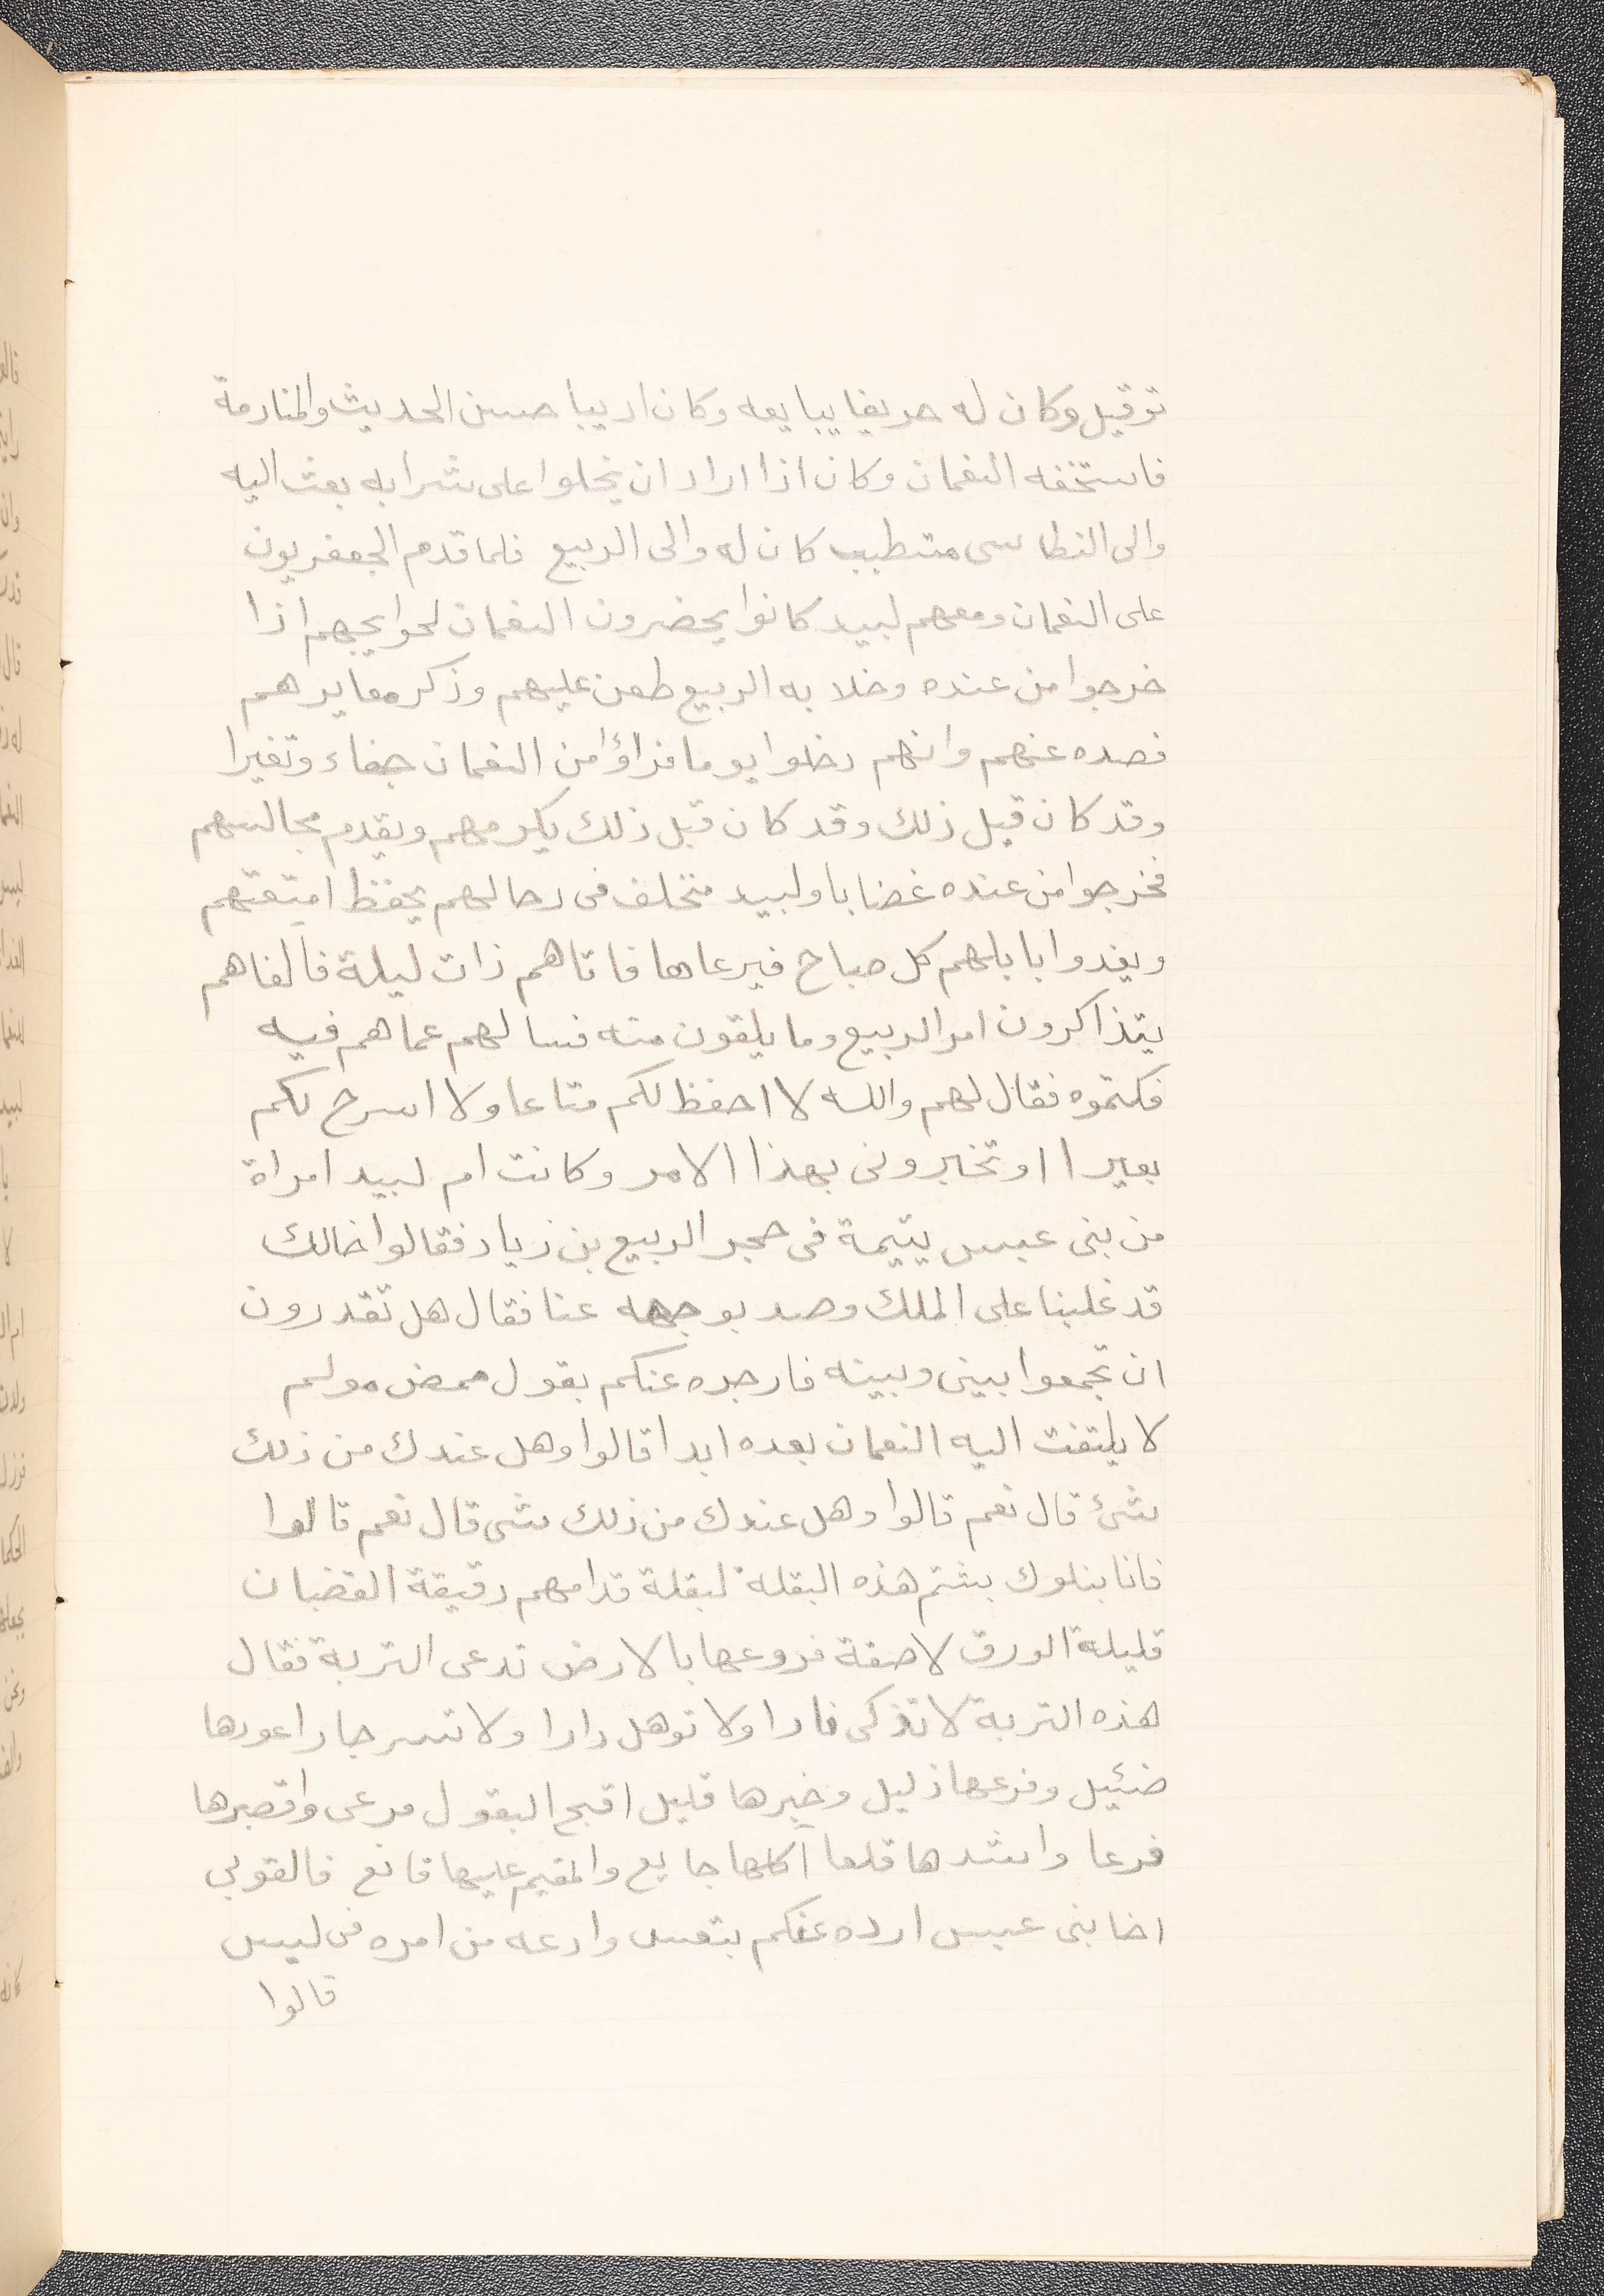 توقيل وكان له حريفا يبايعه وكان اديبا حسن الحديث والمنادمة
فاستخفه النعمان وكان اذا اراد ان يخلوا على شرابه بعث اليه
والى النطاسى متطبب كان له والى الربيع فلما قدم الجعفريون
على النعمان ومعهم لبيد كانوا يحضرون النعمان لحوايجهم اذا
خرجوا من عنده وخلا به الربيع طعن عليهم وذكر معايرهم
فصده عنهم وانهم دخلوا يوما فراؤا من النعمان جفاء وتغيرا
وقد كان قبل ذلك وقد كان قبل ذلك يكرمهم ويقدم مجالسهم
فخرجوا من عنده غضابا ولبيد متخلف فى رحالهم يحفظ امتعتهم
ويغدوا بابلهم كل صباح فيرعاها فاتاهم ذات ليلة فالفاهم
يتذاكرون امر الربيع وما يلقون منه فسالهم عما هم فيه
فكتموه فقال لهم والله لا احفظ لكم متاعا ولا اسرح لكم
بعيرا او تخبرونى بهذا الامر وكانت ام لبيد امراة
من بنى عبس يتيمة فى حجر الربيع بن زياد فقالوا خالك
قد غلبنا على الملك وصد بوجهه عنا فقال هل تقدرون
ان تجمعوا بينى وبينه فارجره عنكم بقول ممض مولم
لا يلتفت اليه النعمان بعده ابدا قالوا وهل عندك من ذلك
شئ قال نعم قالوا وهل عندك من ذلك شى قال نعم قالوا
فانا بنلوك بشتم هذه البقلة لبقلة قدامهم دقيقة القضبان
قليلة الورق لاصقة فروعها بالارض تدعى التربة فقال
هذه التربة لا تذكى نارا ولا توهل دارا ولا تسر جارا عودها
ضئيل وفرعها ذليل وخيرها قليل اقبح البقول مرعى واقصرها
فرعا واشدها قلعا آكلها جايع والمقيم عليها قانع فالقوبى
اخا بنى عبس ارده عنكم بتعس وادعه من امره فى لبس
قالوا